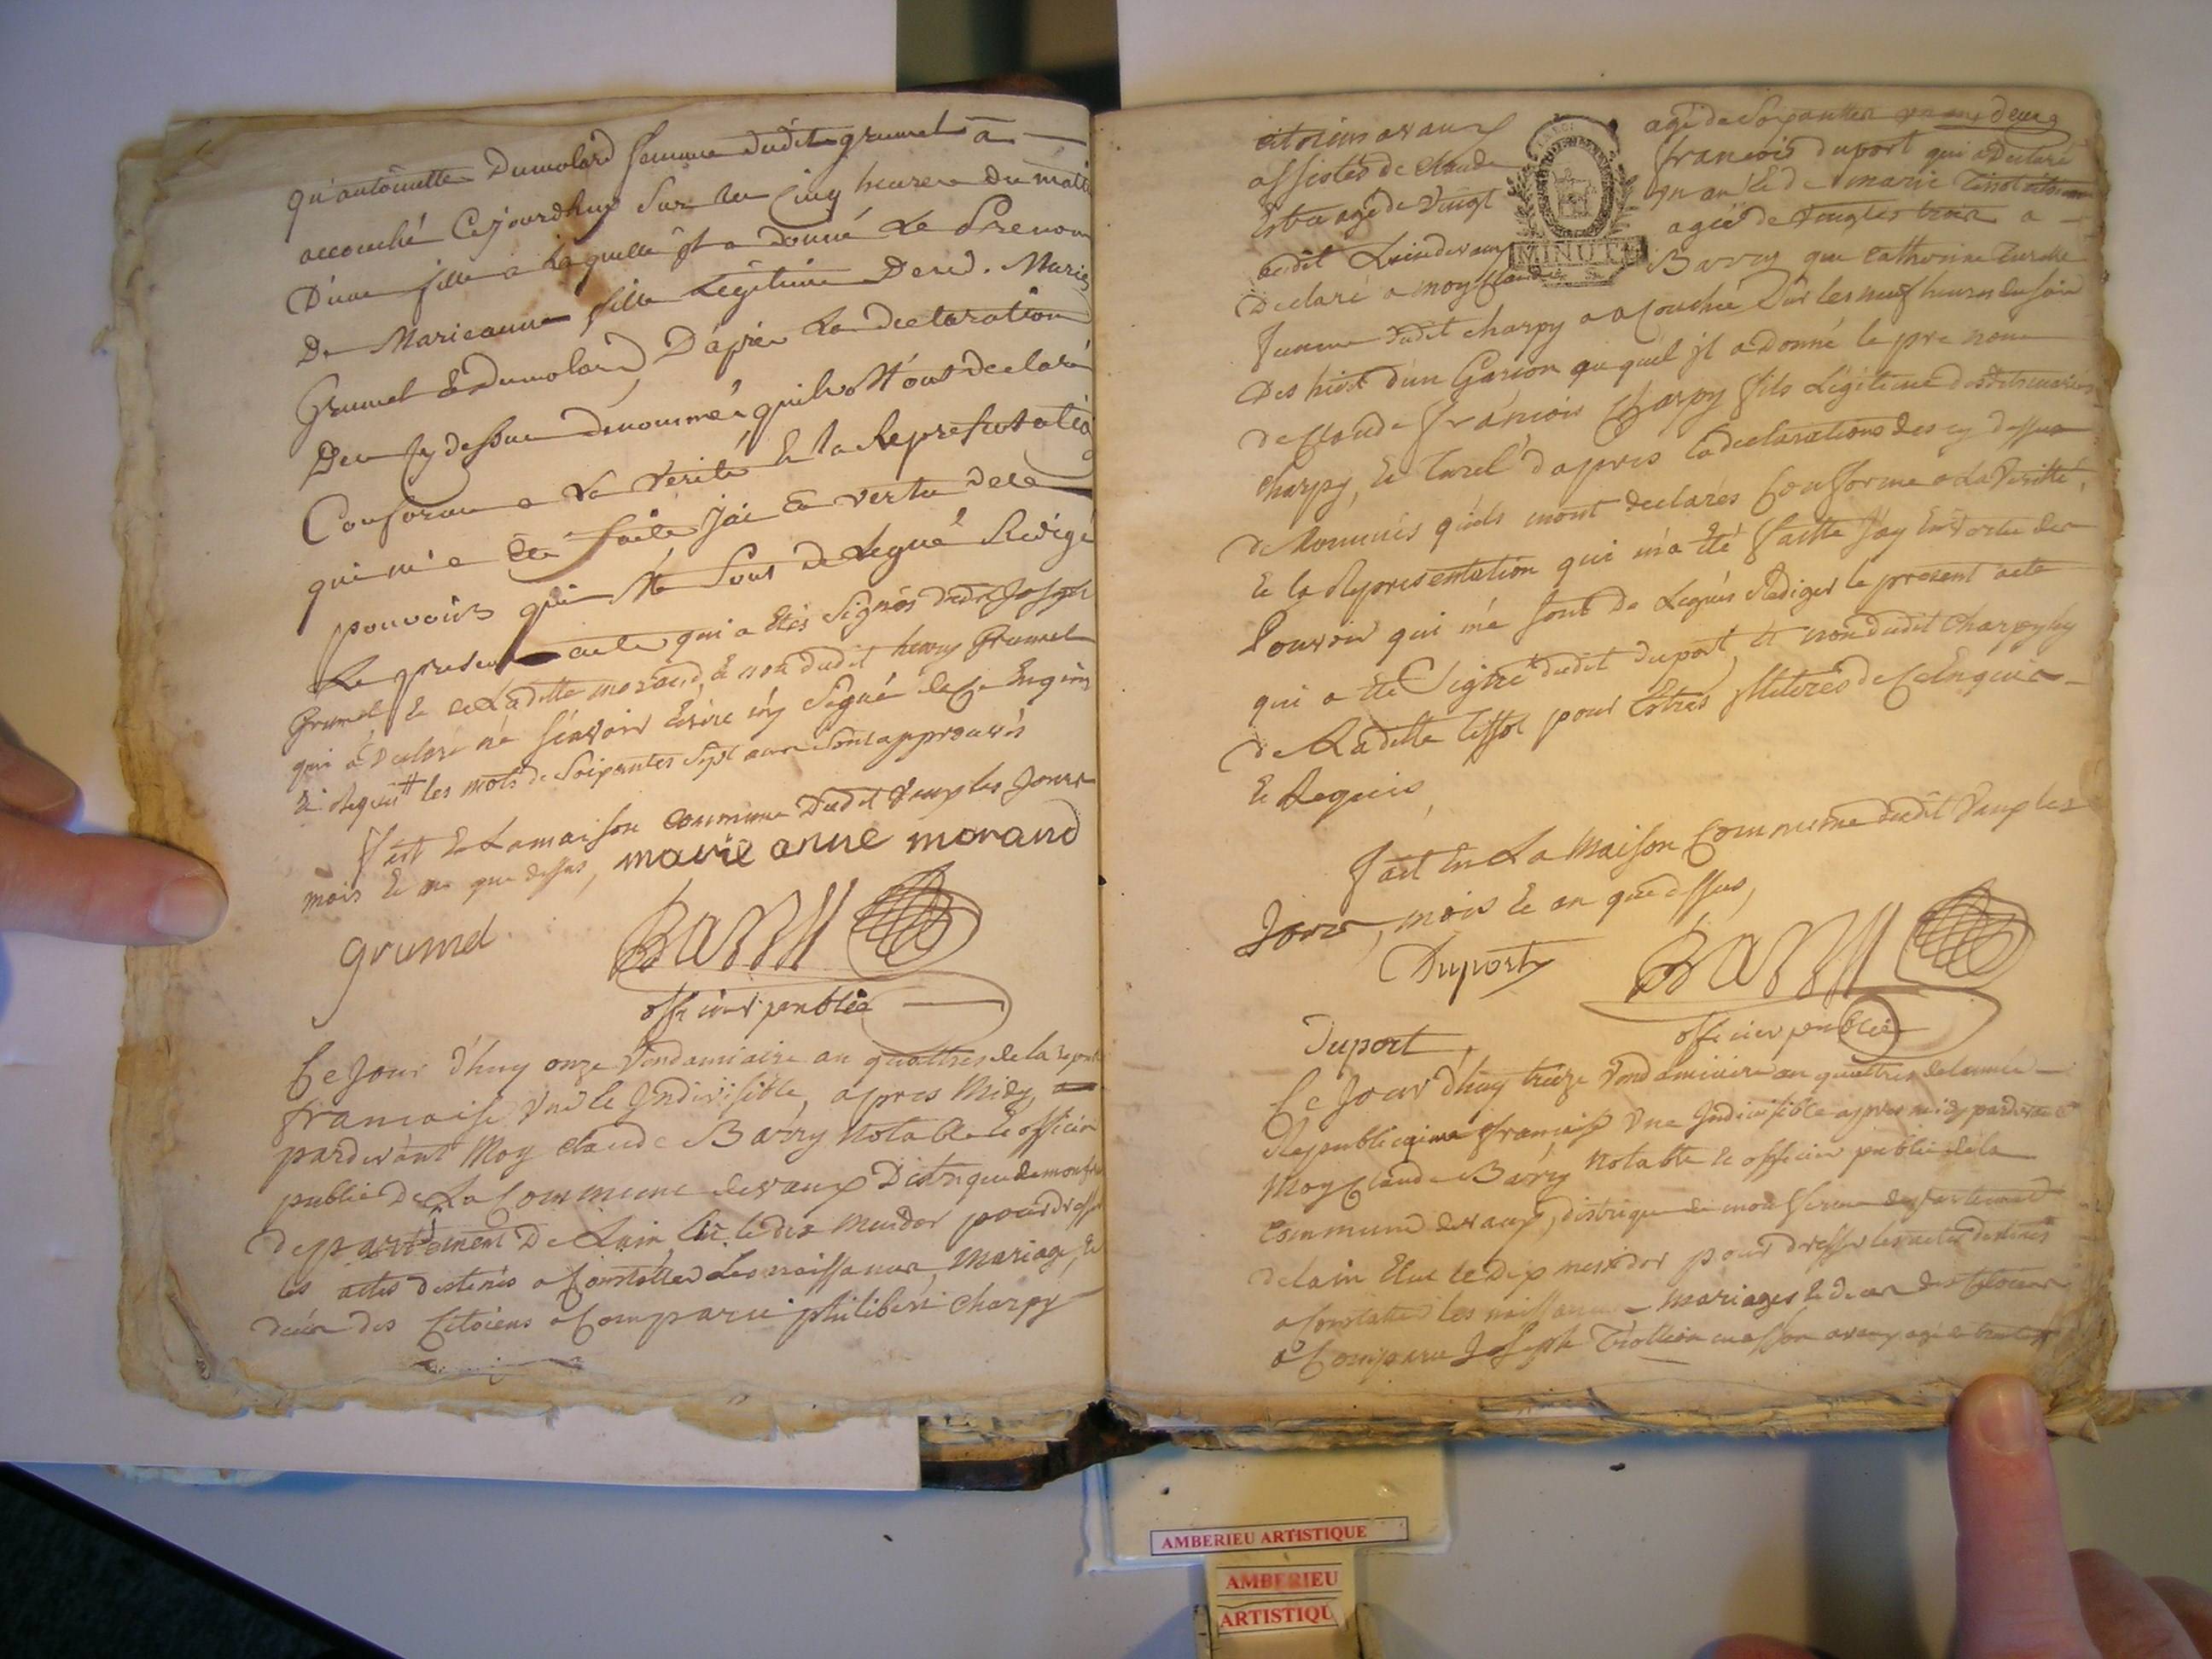 qu'antoinette Dumolard femme dudit grumel a
accouché Cejourdhuy sur les Cinq heures Du matin
D'une fille a laquelle il a donné Le Prenom
De Marieanne fille Legitime Desd. Mariés
Grumel & Dumolard, D'après La declaration
Des cy dessus dénommés, quils m'ont declaré
Conforme a La Verité & la Representation
qui m'a été faite j'ai En vertu des
pouvoirs qui Me sont Delegué Redigé
Le present acte qui a étés signés dudit Joseph
Grumel, & de Laditte morand, & non dudit henry Grumel
qui a Declaré né sçavoir Ecrire ny signé de ce Enquis
& Requis les mots de soixantes sept ans sont approuvés
fait En Lamaison commune Dudit Vaux les Jours
mois & an que dessus, marie anne morand
grumel
Barry
officier publics
Ce Jour d'huy onze Vendemiaire an quattres de la
francaise Une & Indivisible, apres Midy,
pardevant Moy claude Barry Notable & officier
public De La Commune devaux Distrique
departement De Lain, Elu le dix Messidor pour dresser
les actes destinés a Constatter Les naissances, Mariages, &
décès des Citoiens a Comparu philibert Charpy
citoiens avaux
assistés de claude
agé de Vingt
audit Lieu devaux
Declaré a moy Claude
agé de soixantes
francois duport qui a Declaré
& de marie tissot
agée de vingtes trois a
Barry que Catherine turel
femme dudit charpy a acouchée sur les neuf heures du soir
Des hier d'un Garson au quel il a donné le pre nom
de Claude francois Charpy fils Légitime desdits mariés
Charpy, & turel d'apres la declarations des cy dessus
denommés quils mont declarés Conforme a La Veritté,
& la Representation qui m'a été faitte j'ay En Vertu des
Pouvoir qui mé sont De Legués Rediger le present acte
qui a été Signé dudit duport, & non dudit charpy ny
de Laditte tissot pour Estres illiterés de ce Enquis
& Requis,
fait En La Maison Commune dudit Vaux les
Jours, mois & an que dessus,
Duport
Barry
Duport
officier publics
MINUTE
Ce Jour d'huy treize Vendemiaire an quattres de
Republiquaine francaise Une Indivisible apres midy pardevant
Moy Claude Barry Notable & officier public de la
Commune devaux, distrique de departement
delain Elue le Dix messidor pour dresser les actes destinés
a Constatter les naissances mariages & deces des Citoiens
a Comparu Joseph avaux agé de
AMBERIEU ARTISTIQUE
AMBERIEU
ARTISTIQU